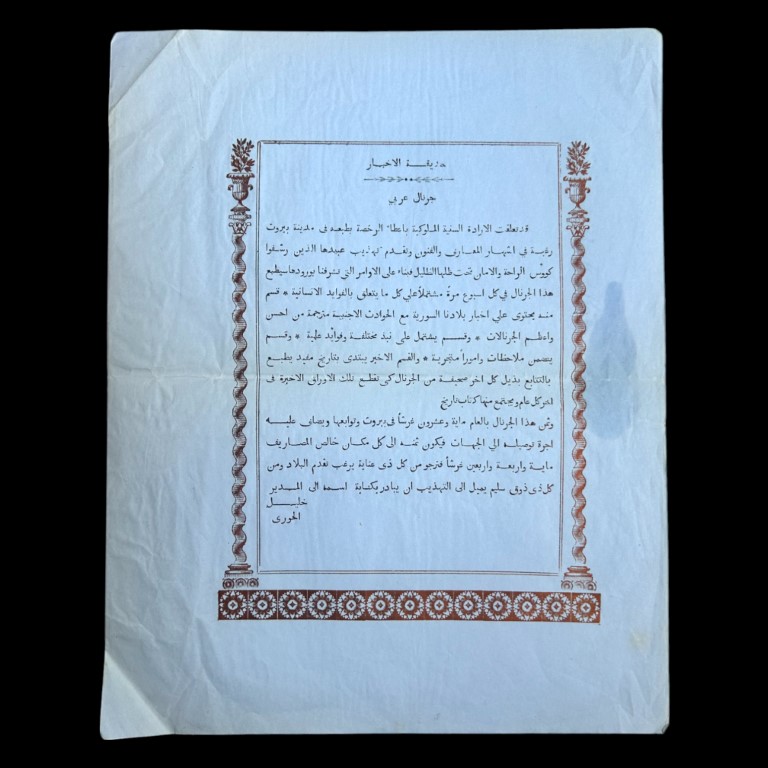 حديقة الاخبار
جرنال عربي
قد تعلقت الارادة السنية الملوكية باعطاء الرخصة بطبعه في مدينة بيروت
رغبة في اشهار المعارف والفنون وتقدم تهذيب عبيدها الذين رشفوا
كووس الراحة والامان تحت ظلها الظليل فبناء على الاوامر التي تشرفنا بورودها سيطبع
هذا الجرنال في كل اسبوع مرةً مشتملاً علي كل ما يتعلق بالفوايد الانسانية * قسم
منه يحتوى علي اخبار بلادنا السورية مع الحوادث الاجنبية مترجمة من احسن
واعظم الجرنالات * وقسم يشتمل على نبذ مختلفة وفوايد علمية * وقسم
يتضمن ملاحظات وامورا متجرية * والقسم الاخير يبتدى بتاريخ مفيد يطبع
بالتتابع بذيل كل اخر صحيفة من الجرنال كى تقطع تلك الاوراق الاخيرة فى
اخر كل عام ويجتمع منها كتاب تاريخ
وثمن هذا الجرنال بالعام ماية وعشرون غرشاً فى بيروت وتوابعها ويضاف عليه
اجرة توصيله الي الجهات فيكون ثمنه الى كل مكان خالص المصاريف
ماية واربعة واربعين غرشاً فنرجو من كل ذى عناية يرغب تقدم البلاد ومن
كل ذى ذوق سليم يميل الى التهذيب ان يبادر بكتابة اسمه الى المدير
خليل
الخورى